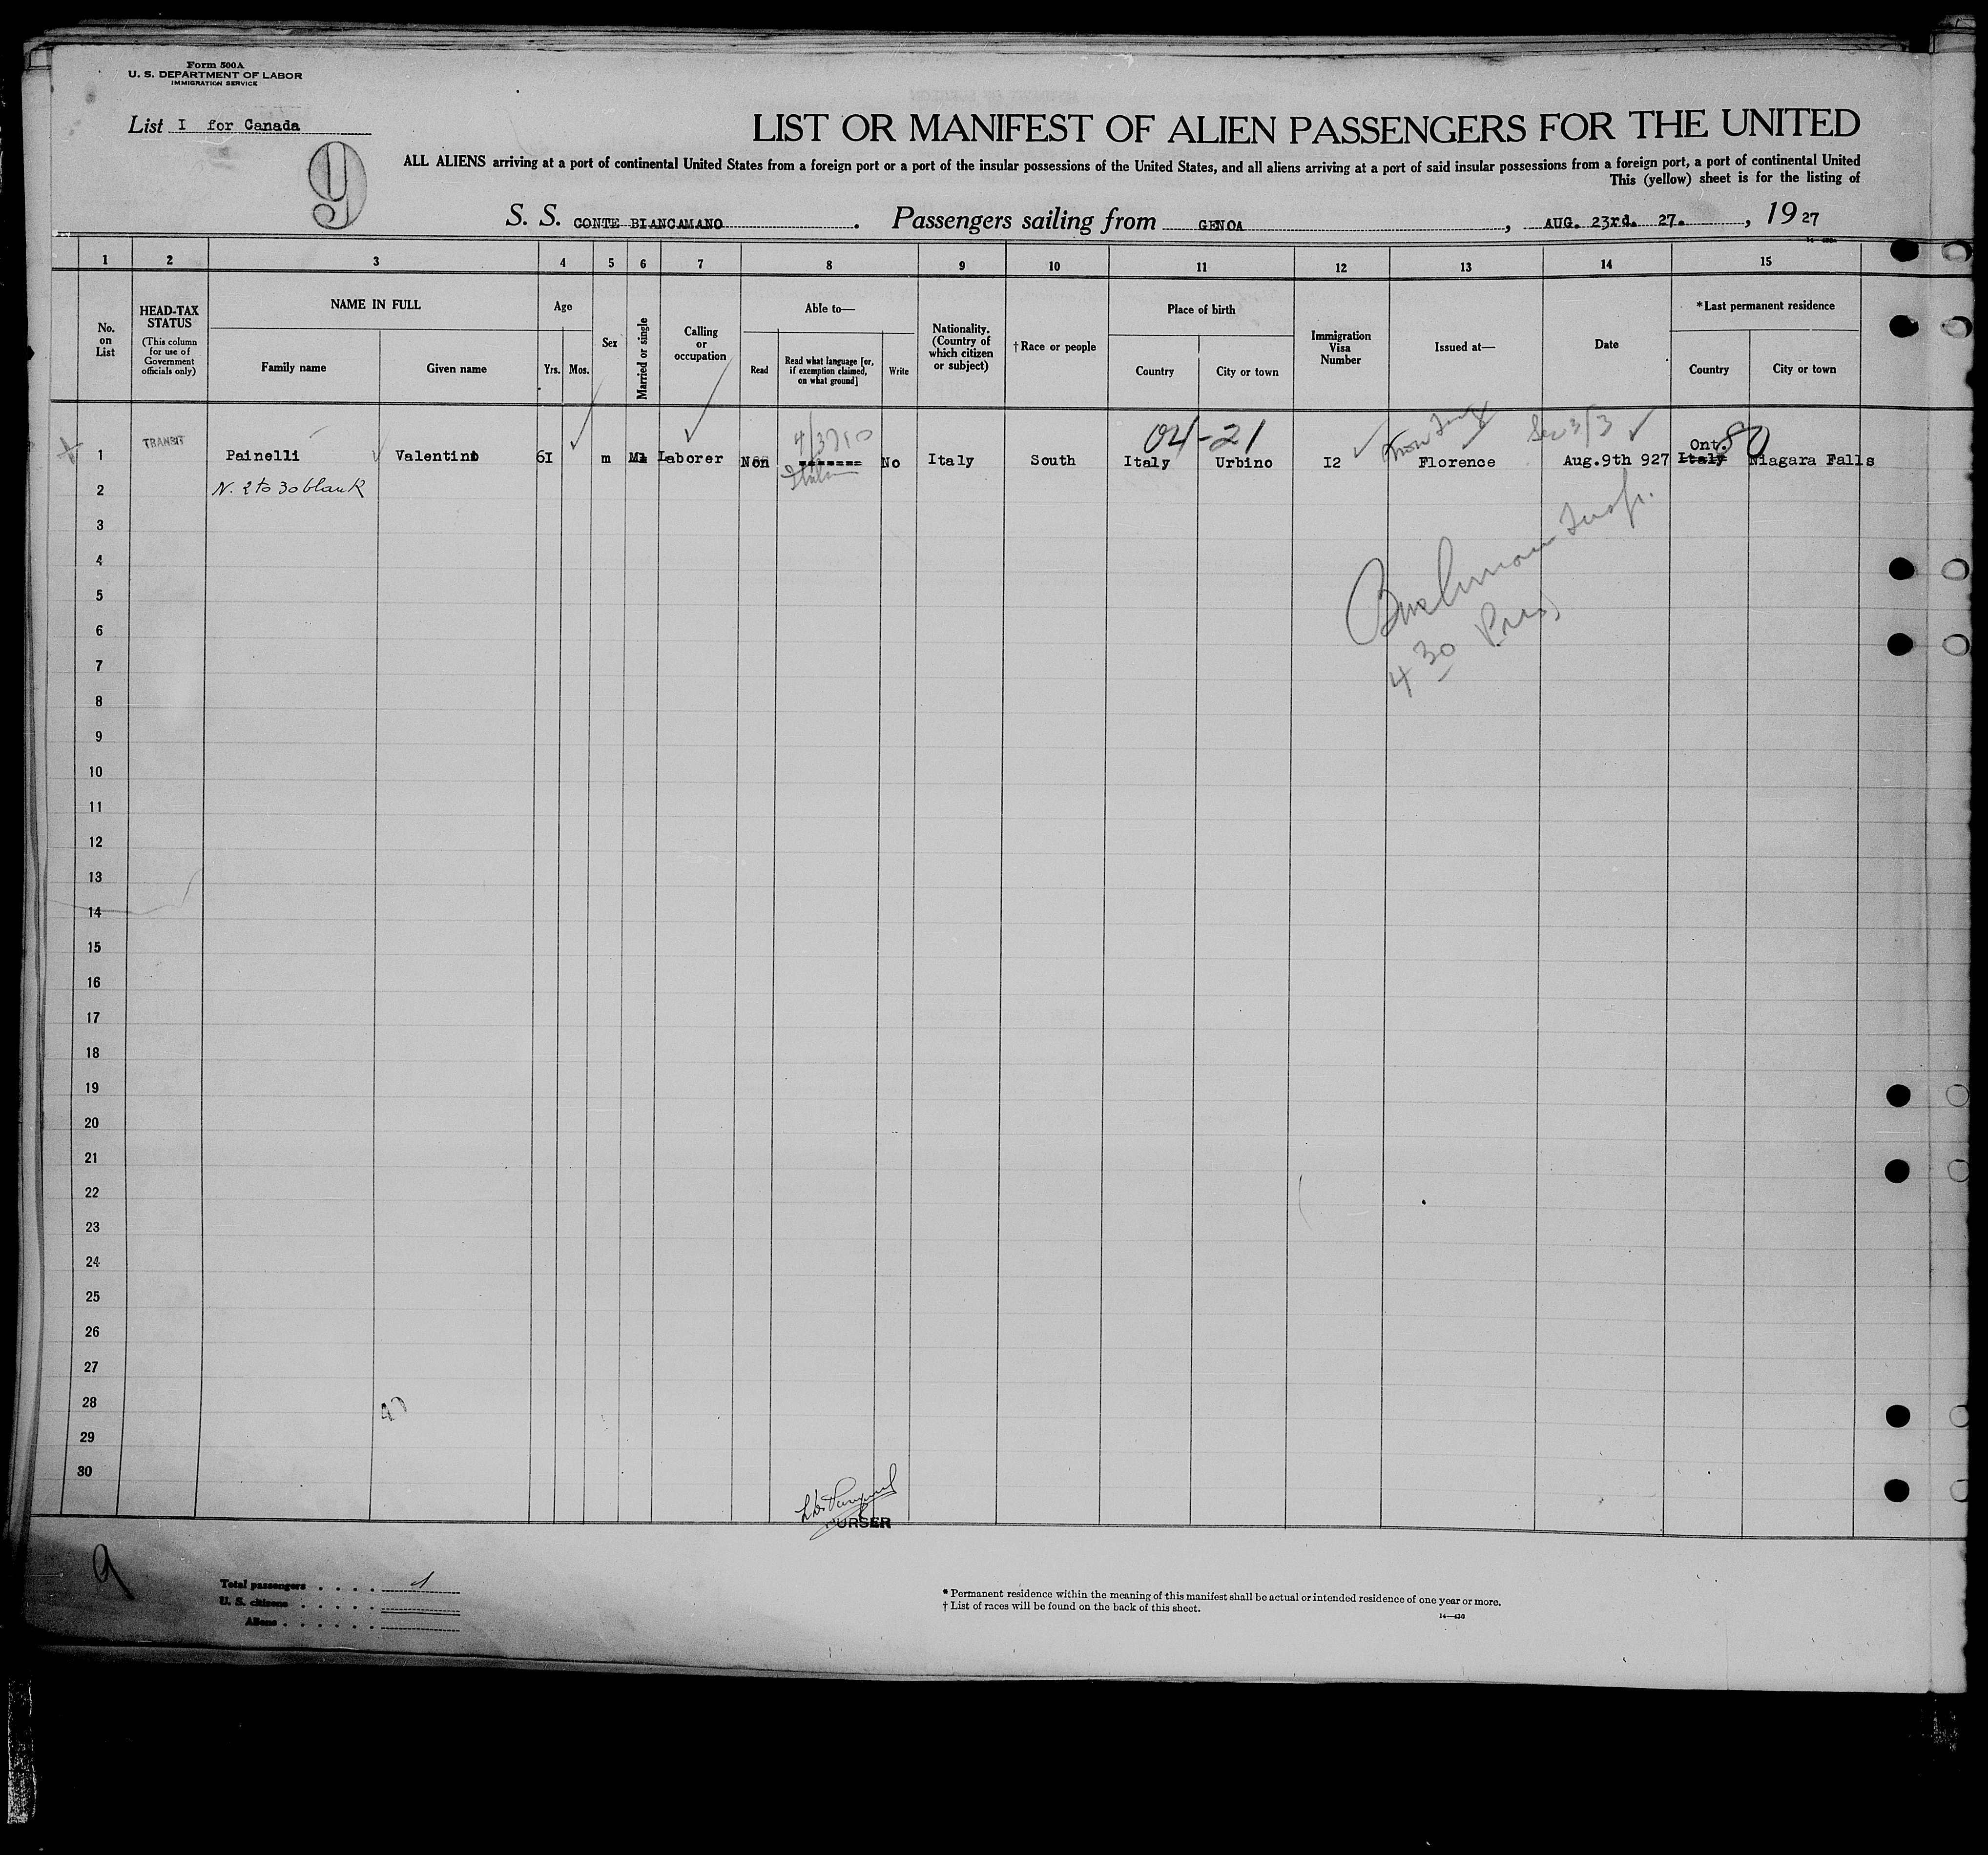 Form 500A
U. S. DEPARTMENT OF LABOR
IMMIGRATION SERVICE
List I for Canada
9
LIST OR MANIFEST OF ALIEN PASSENGERS FOR THE UNITED
ALL ALIENS arriving at a port of continental United States from a foreign port or a port of the insular possessions of the United States, and all aliens arriving at a port of said insular possessions from a foreign port, a port of continental United
This (yellow) sheet is for the listing of
S. S. CONTE BIANCAMANO. Passengers sailing from GENOA, AUG. 23rd. 27., 19 27
1 2 3 4 5 6 7 8 9 10 11 12 13 14 15
No. on List
HEAD-TAX STATUS
(This column for use of Government officials only)
NAME IN FULL
Family name Given name
Age
Yrs. Mos.
Sex
Married or single
Calling or occupation
Able to—
Read
Read what language [or, if exemption claimed, on what ground]
Write
Nationality. (Country of which citizen or subject)
†Race or people
Place of birth
Country City or town
Immigration Visa Number
Issued at—
Date
*Last permanent residence
Country City or town
04-21
80
1 TRANSIT Painelli Valentino 6I m M Laborer Non Italian No Italy South Italy Urbino I2 Florence Aug.9th 927 Ont. Italy Niagara Falls
2 N. 2 to 30 blank
3
4
5
6
7
8
9
10
11
12
13
14
15
16
17
18
19
20
21
22
23
24
25
26
27
28
29
30
Insp.
4 30
PURSER
9
Total passengers . . . . 1
U. S. citizens . . . . .
Aliens . . . . . .
* Permanent residence within the meaning of this manifest shall be actual or intended residence of one year or more.
† List of races will be found on the back of this sheet.
14—430